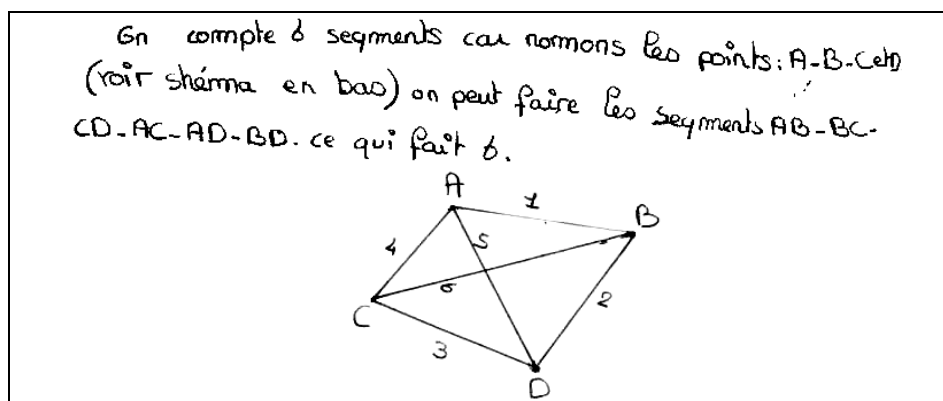 On compte 6 segments car nomons les points : A-B-C et D
(voir shéma en bas) on peut faire les segments AB-BC-
CD-AC-AD-BD. ce qui fait 6.
A
1
B
4
5
6
2
C
3
D